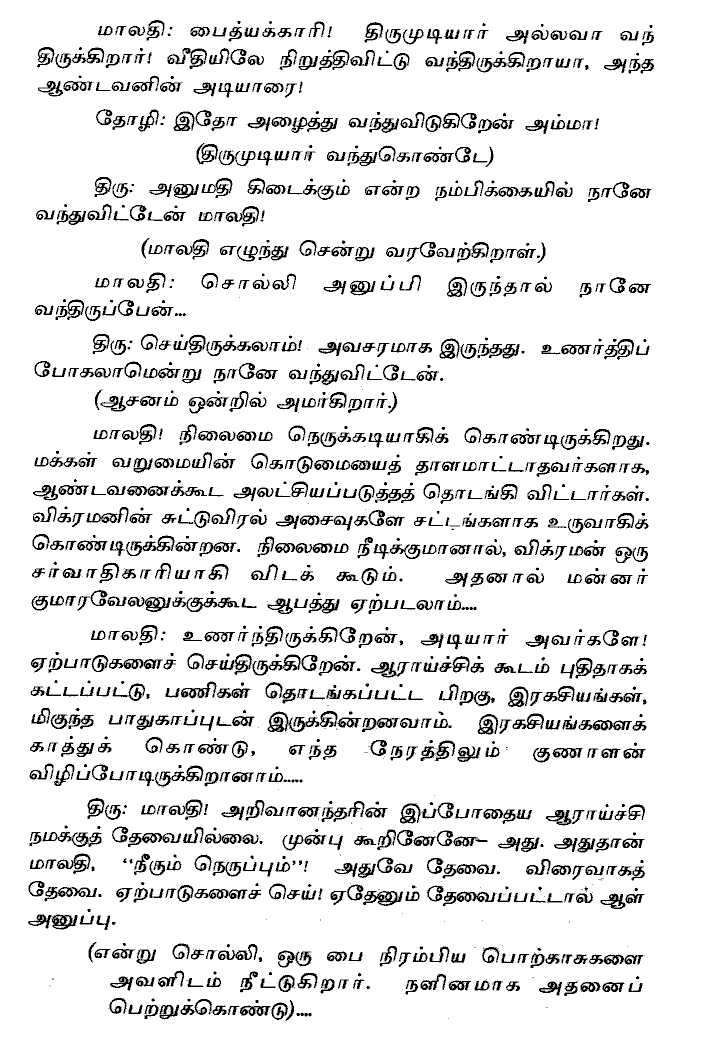 மாலதி: பைத்யக்காரி! திருமுடியார் அல்லவா வந்
திருக்கிறார்! வீதியிலே நிறுத்திவிட்டு வந்திருக்கிறாயா, அந்த
ஆண்டவனின் அடியாரை!
தோழி: இதோ அழைத்து வந்துவிடுகிறேன் அம்மா!
(திருமுடியார் வந்துகொண்டே)
திரு: அனுமதி கிடைக்கும் என்ற நம்பிக்கையில் நானே
வந்துவிட்டேன் மாலதி!
(மாலதி எழுந்து சென்று வரவேற்கிறாள்.)
மாலதி: சொல்லி அனுப்பி இருந்தால் நானே
வந்திருப்பேன்...
திரு: செய்திருக்கலாம்! அவசரமாக இருந்தது. உணர்த்திப்
போகலாமென்று நானே வந்துவிட்டேன்.
(ஆசனம் ஒன்றில் அமர்கிறார்.)
மாலதி! நிலைமை நெருக்கடியாகிக் கொண்டிருக்கிறது.
மக்கள் வறுமையின் கொடுமையைத் தாளமாட்டாதவர்களாக,
ஆண்டவனைக்கூட அலட்சியப்படுத்தத் தொடங்கி விட்டார்கள்.
விக்ரமனின் சுட்டுவிரல் அசைவுகளே சட்டங்களாக உருவாகிக்
கொண்டிருக்கின்றன. நிலைமை நீடிக்குமானால், விக்ரமன் ஒரு
சர்வாதிகாரியாகி விடக் கூடும். அதனால் மன்னர்
குமாரவேலனுக்குக்கூட ஆபத்து ஏற்படலாம்....
மாலதி: உணர்ந்திருக்கிறேன், அடியார் அவர்களே!
ஏற்பாடுகளைச் செய்திருக்கிறேன். ஆராய்ச்சிக் கூடம் புதிதாகக்
கட்டப்பட்டு, பணிகள் தொடங்கப்பட்ட பிறகு, இரகசியங்கள்,
மிகுந்த பாதுகாப்புடன் இருக்கின்றனவாம். இரகசியங்களைக்
காத்துக் கொண்டு, எந்த நேரத்திலும் குணாளன்
விழிப்போடிருக்கிறானாம்.....
திரு: மாலதி! அறிவானந்தரின் இப்போதைய ஆராய்ச்சி
நமக்குத் தேவையில்லை. முன்பு கூறினேனே– அது. அதுதான்
மாலதி, “நீரும் நெருப்பும்”! அதுவே தேவை. விரைவாகத்
தேவை. ஏற்பாடுகளைச் செய்! ஏதேனும் தேவைப்பட்டால் ஆள்
அனுப்பு.
(என்று சொல்லி, ஒரு பை நிரம்பிய பொற்காசுகளை
அவளிடம் நீட்டுகிறார். நளினமாக அதனைப்
பெற்றுக்கொண்டு)....